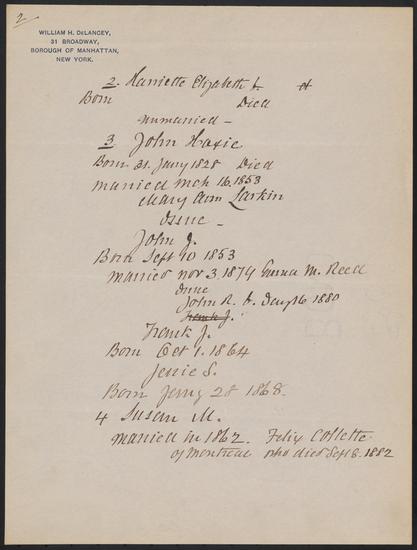 2
WILLIAM H. DeLANCEY,
31 BROADWAY,
BOROUGH OF MANHATTAN,
NEW YORK.
2. Harriette Elizabeth
Born Died
unmarried –
3 John Haxie
Born 31. Jany 1828 Died
married Mch 16. 1853
Mary Ann Larkin
Issue –
John J.
Born Sept 10 1853
married Nov 3. 1874 Emma M. Reed
Issue
John R. b. Jany 16 1880
Frank J.
Frank J.
Born Oct 1. 1864
Jessie S.
Born Jany 28 1868.
4 Susan M.
married in 1862. Felix Collette
of Montreal who died Sept 8. 1882